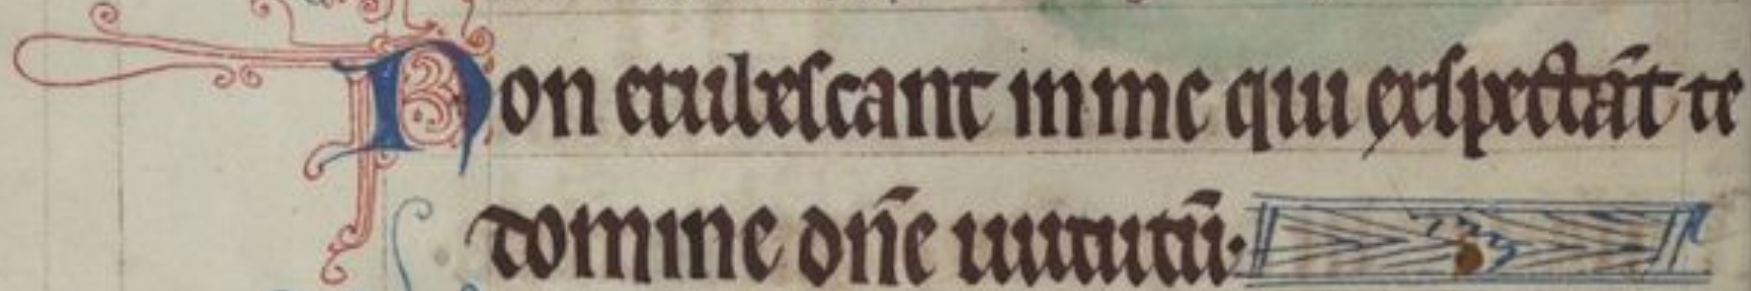 Non erubescant in me qui exspectāt te
domine dn̄e uirtutū.